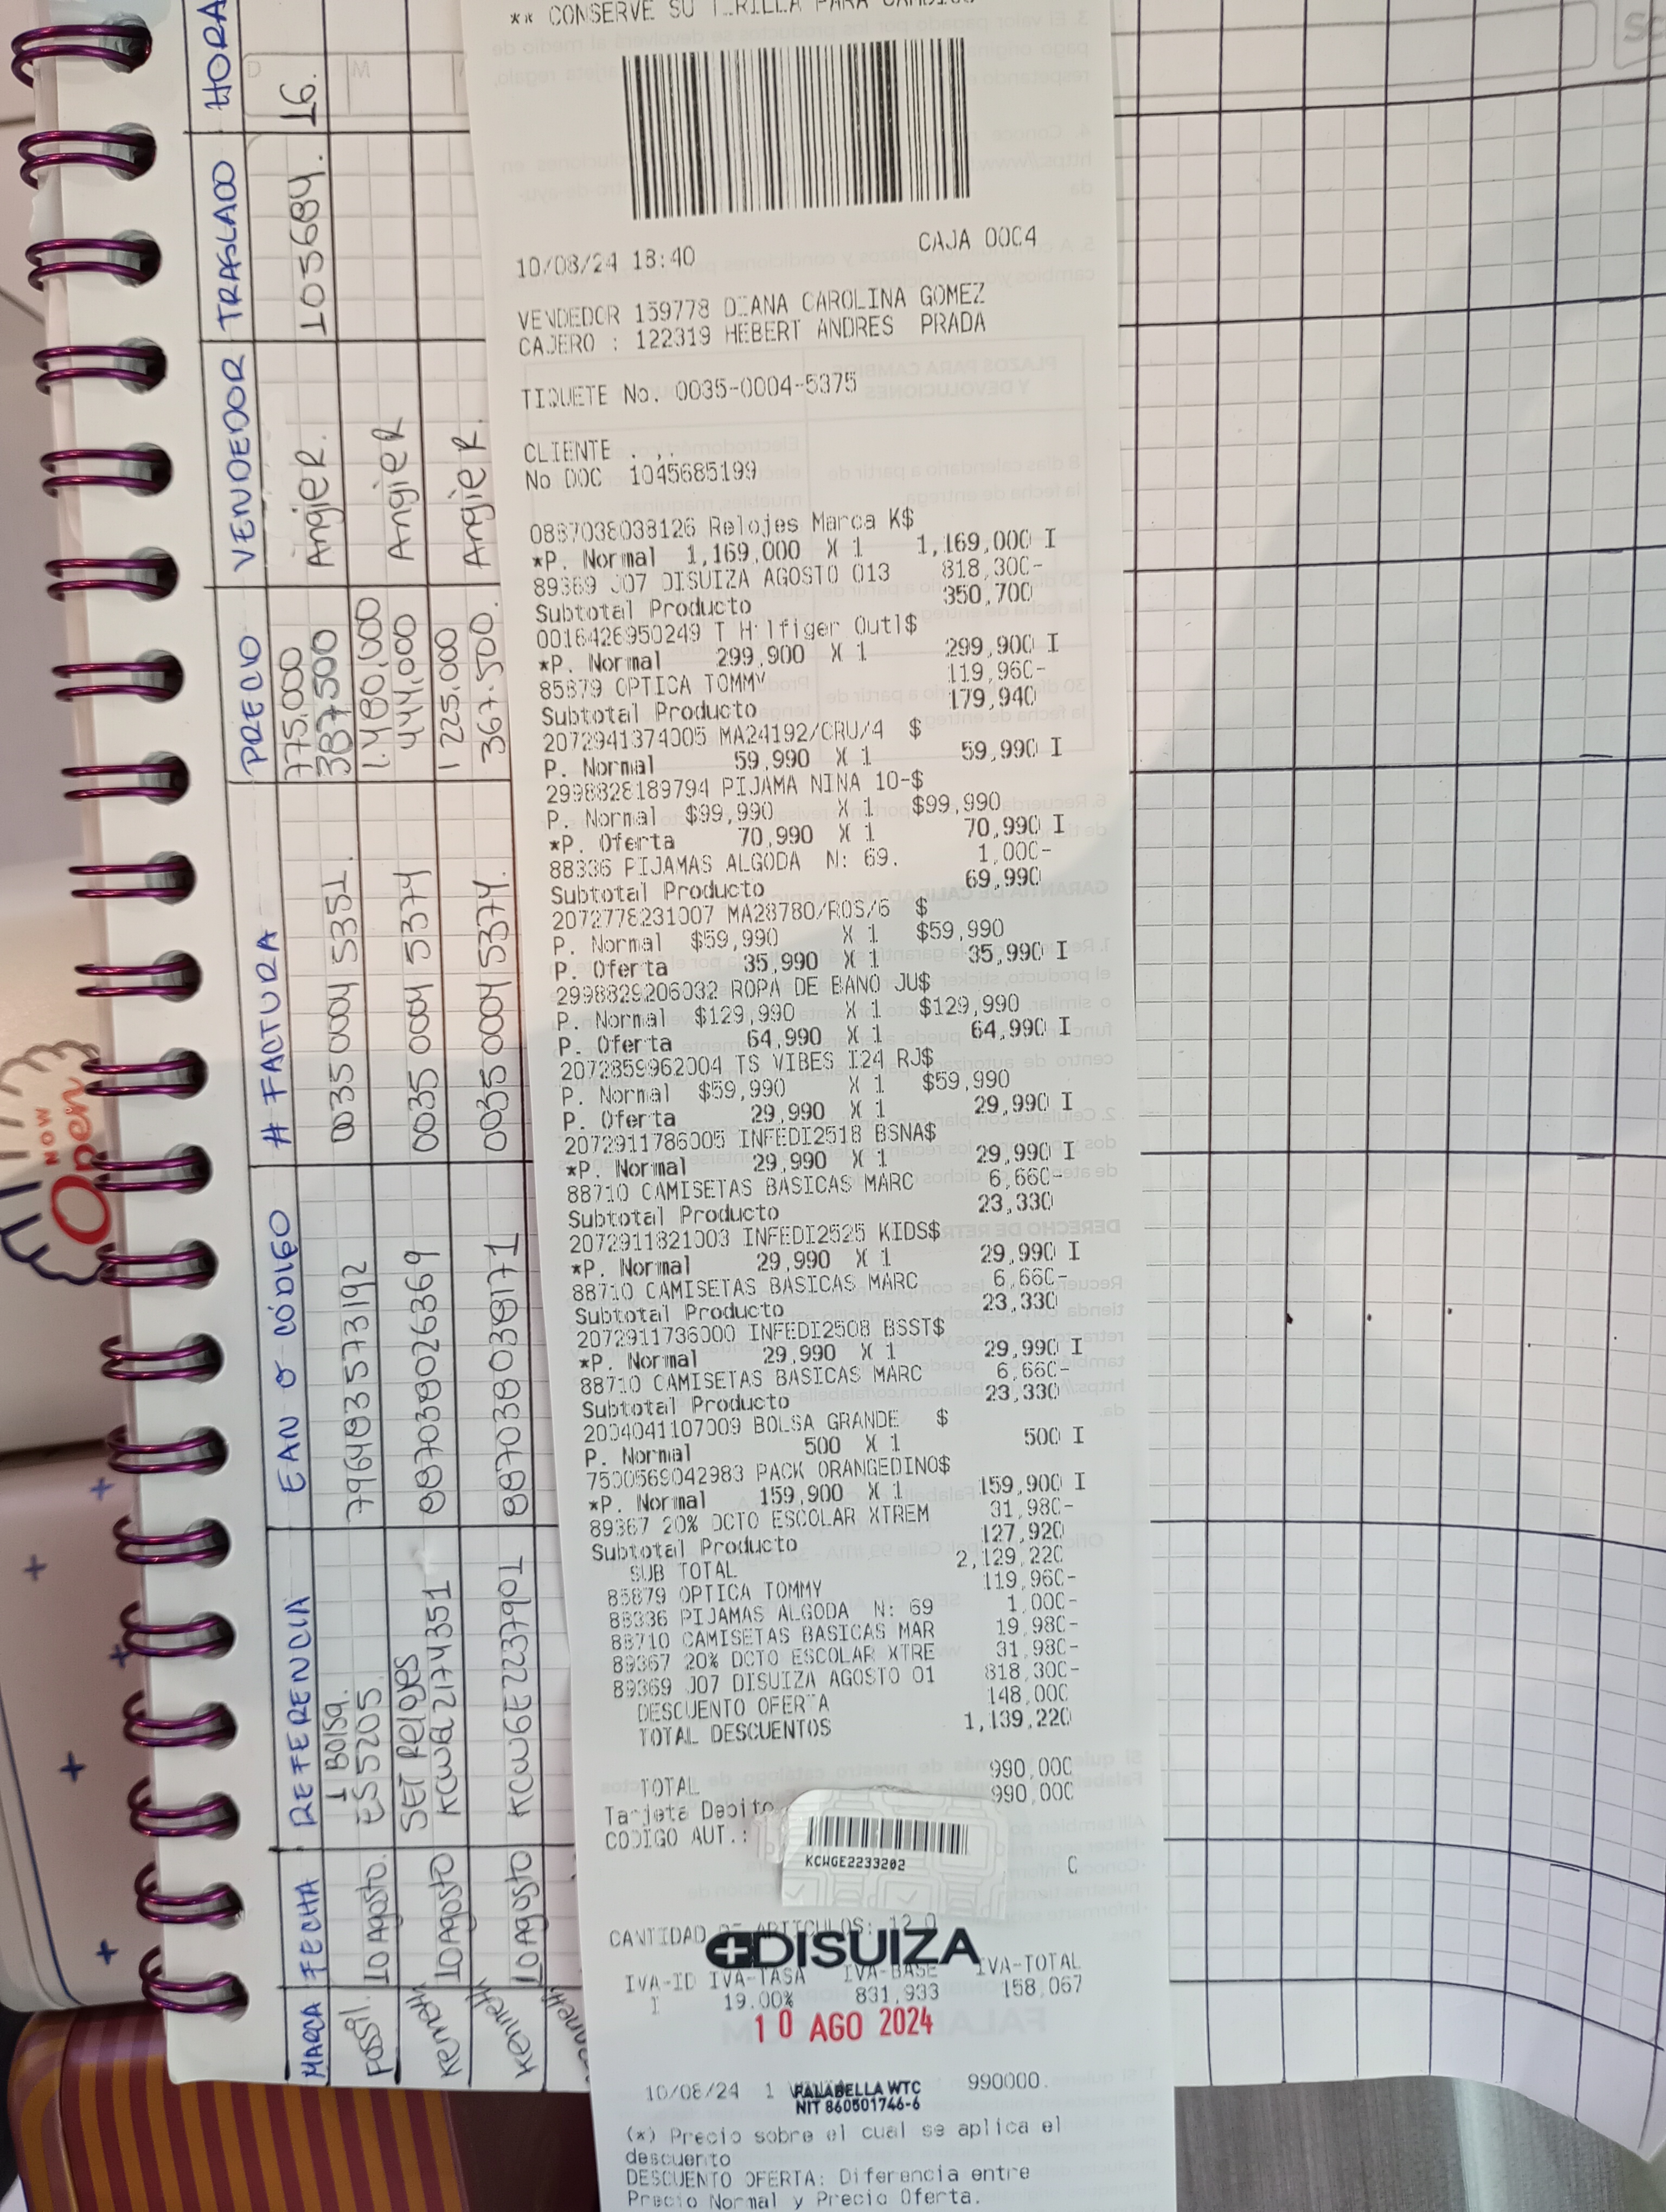 ** CONSERVE SU TIRILLA PARA
10/08/24 18:40 CAJA 0004
VENDEDOR 159778 DIANA CAROLINA GOMEZ
CAJERO : 122319 HEBERT ANDRES PRADA
TIQUETE No. 0035-0004-5375
CLIENTE . ,.
No DOC 1045685199
0887038038126 Relojes Marca K$
*P. Normal 1,169,000 X 1 1,169,000 I
89369 J07 DISUIZA AGOSTO 013 818,300-
Subtotal Producto 350,700
0016426950249 T Hilfiger Outl$
*P. Normal 299,900 X 1 299,900 I
85879 OPTICA TOMMY 119,960-
Subtotal Producto 179,940
2072941374005 MA24192/CRU/4 $
P. Normal 59,990 X 1 59,990 I
2998828189794 PIJAMA NINA 10-$
P. Normal $99,990 X 1 $99,990
*P. Oferta 70,990 X 1 70,990 I
88336 PIJAMAS ALGODA N: 69. 1,000-
Subtotal Producto 69,990
2072778231007 MA28780/ROS/6 $
P. Normal $59,990 X 1 $59,990
P. Oferta 35,990 X 1 35,990 I
2998829206032 ROPA DE BANO JU$
P. Normal $129,990 X 1 $129,990
P. Oferta 64,990 X 1 64,990 I
2072859962004 TS VIBES I24 RJ$
P. Normal $59,990 X 1 $59,990
P. Oferta 29,990 X 1 29,990 I
2072911786005 INFEDI2518 BSNA$
*P. Normal 29,990 X 1 29,990 I
88710 CAMISETAS BASICAS MARC 6,660-
Subtotal Producto 23,330
2072911821003 INFEDI2525 KIDS$
*P. Normal 29,990 X 1 29,990 I
88710 CAMISETAS BASICAS MARC 6,660-
Subtotal Producto 23,330
2072911736000 INFEDI2508 BSST$
*P. Normal 29,990 X 1 29,990 I
88710 CAMISETAS BASICAS MARC 6,660-
Subtotal Producto 23,330
2004041107009 BOLSA GRANDE $
P. Normal 500 X 1 500 I
7500569042983 PACK ORANGEDINO$
*P. Normal 159,900 X 1 159,900 I
89367 20% DCTO ESCOLAR XTREM 31,980-
Subtotal Producto 127,920
SUB TOTAL 2,129,220
85879 OPTICA TOMMY 119,960-
88336 PIJAMAS ALGODA N: 69 1,000-
88710 CAMISETAS BASICAS MAR 19,980-
89367 20% DCTO ESCOLAR XTRE 31,980-
89369 J07 DISUIZA AGOSTO 01 818,300-
DESCUENTO OFERTA 148,000
TOTAL DESCUENTOS 1,139,220
TOTAL 990,000
Tarjeta Debito 990,000
CODIGO AUT.:
KCWGE2233202
C
CANTIDAD DE ARTICULOS: 12.0
DISUIZA
IVA-ID IVA-TASA IVA-BASE IVA-TOTAL
I 19.00% 831,933 158,067
10 AGO 2024
10/08/24 1 990000.
FALABELLA WTC
NIT 860501746-6
(*) Precio sobre el cual se aplica el
descuento
DESCUENTO OFERTA: Diferencia entre
Precio Normal y Precio Oferta.
MARCA FECHA REFERENCIA EAN O CÓDIGO # FACTURA PRECIO VENDEDOR TRASLADO HORA
Fossil. 10 Agosto. 1 Bolsa. ES5205. 796483573192 0035 0004 5351. 775.000 387500 AngieR. 105684. 16.
Kenneth 10 Agosto SET Relojes KCWGL2174351 887038026369 0035 0004 5374 1.480,000 444,000 AngieR
Kenneth 10 Agosto KCWGE2237901 887038038171 0035 0004 5374. 1225.000 367.500. AngieR.
NOW
Open